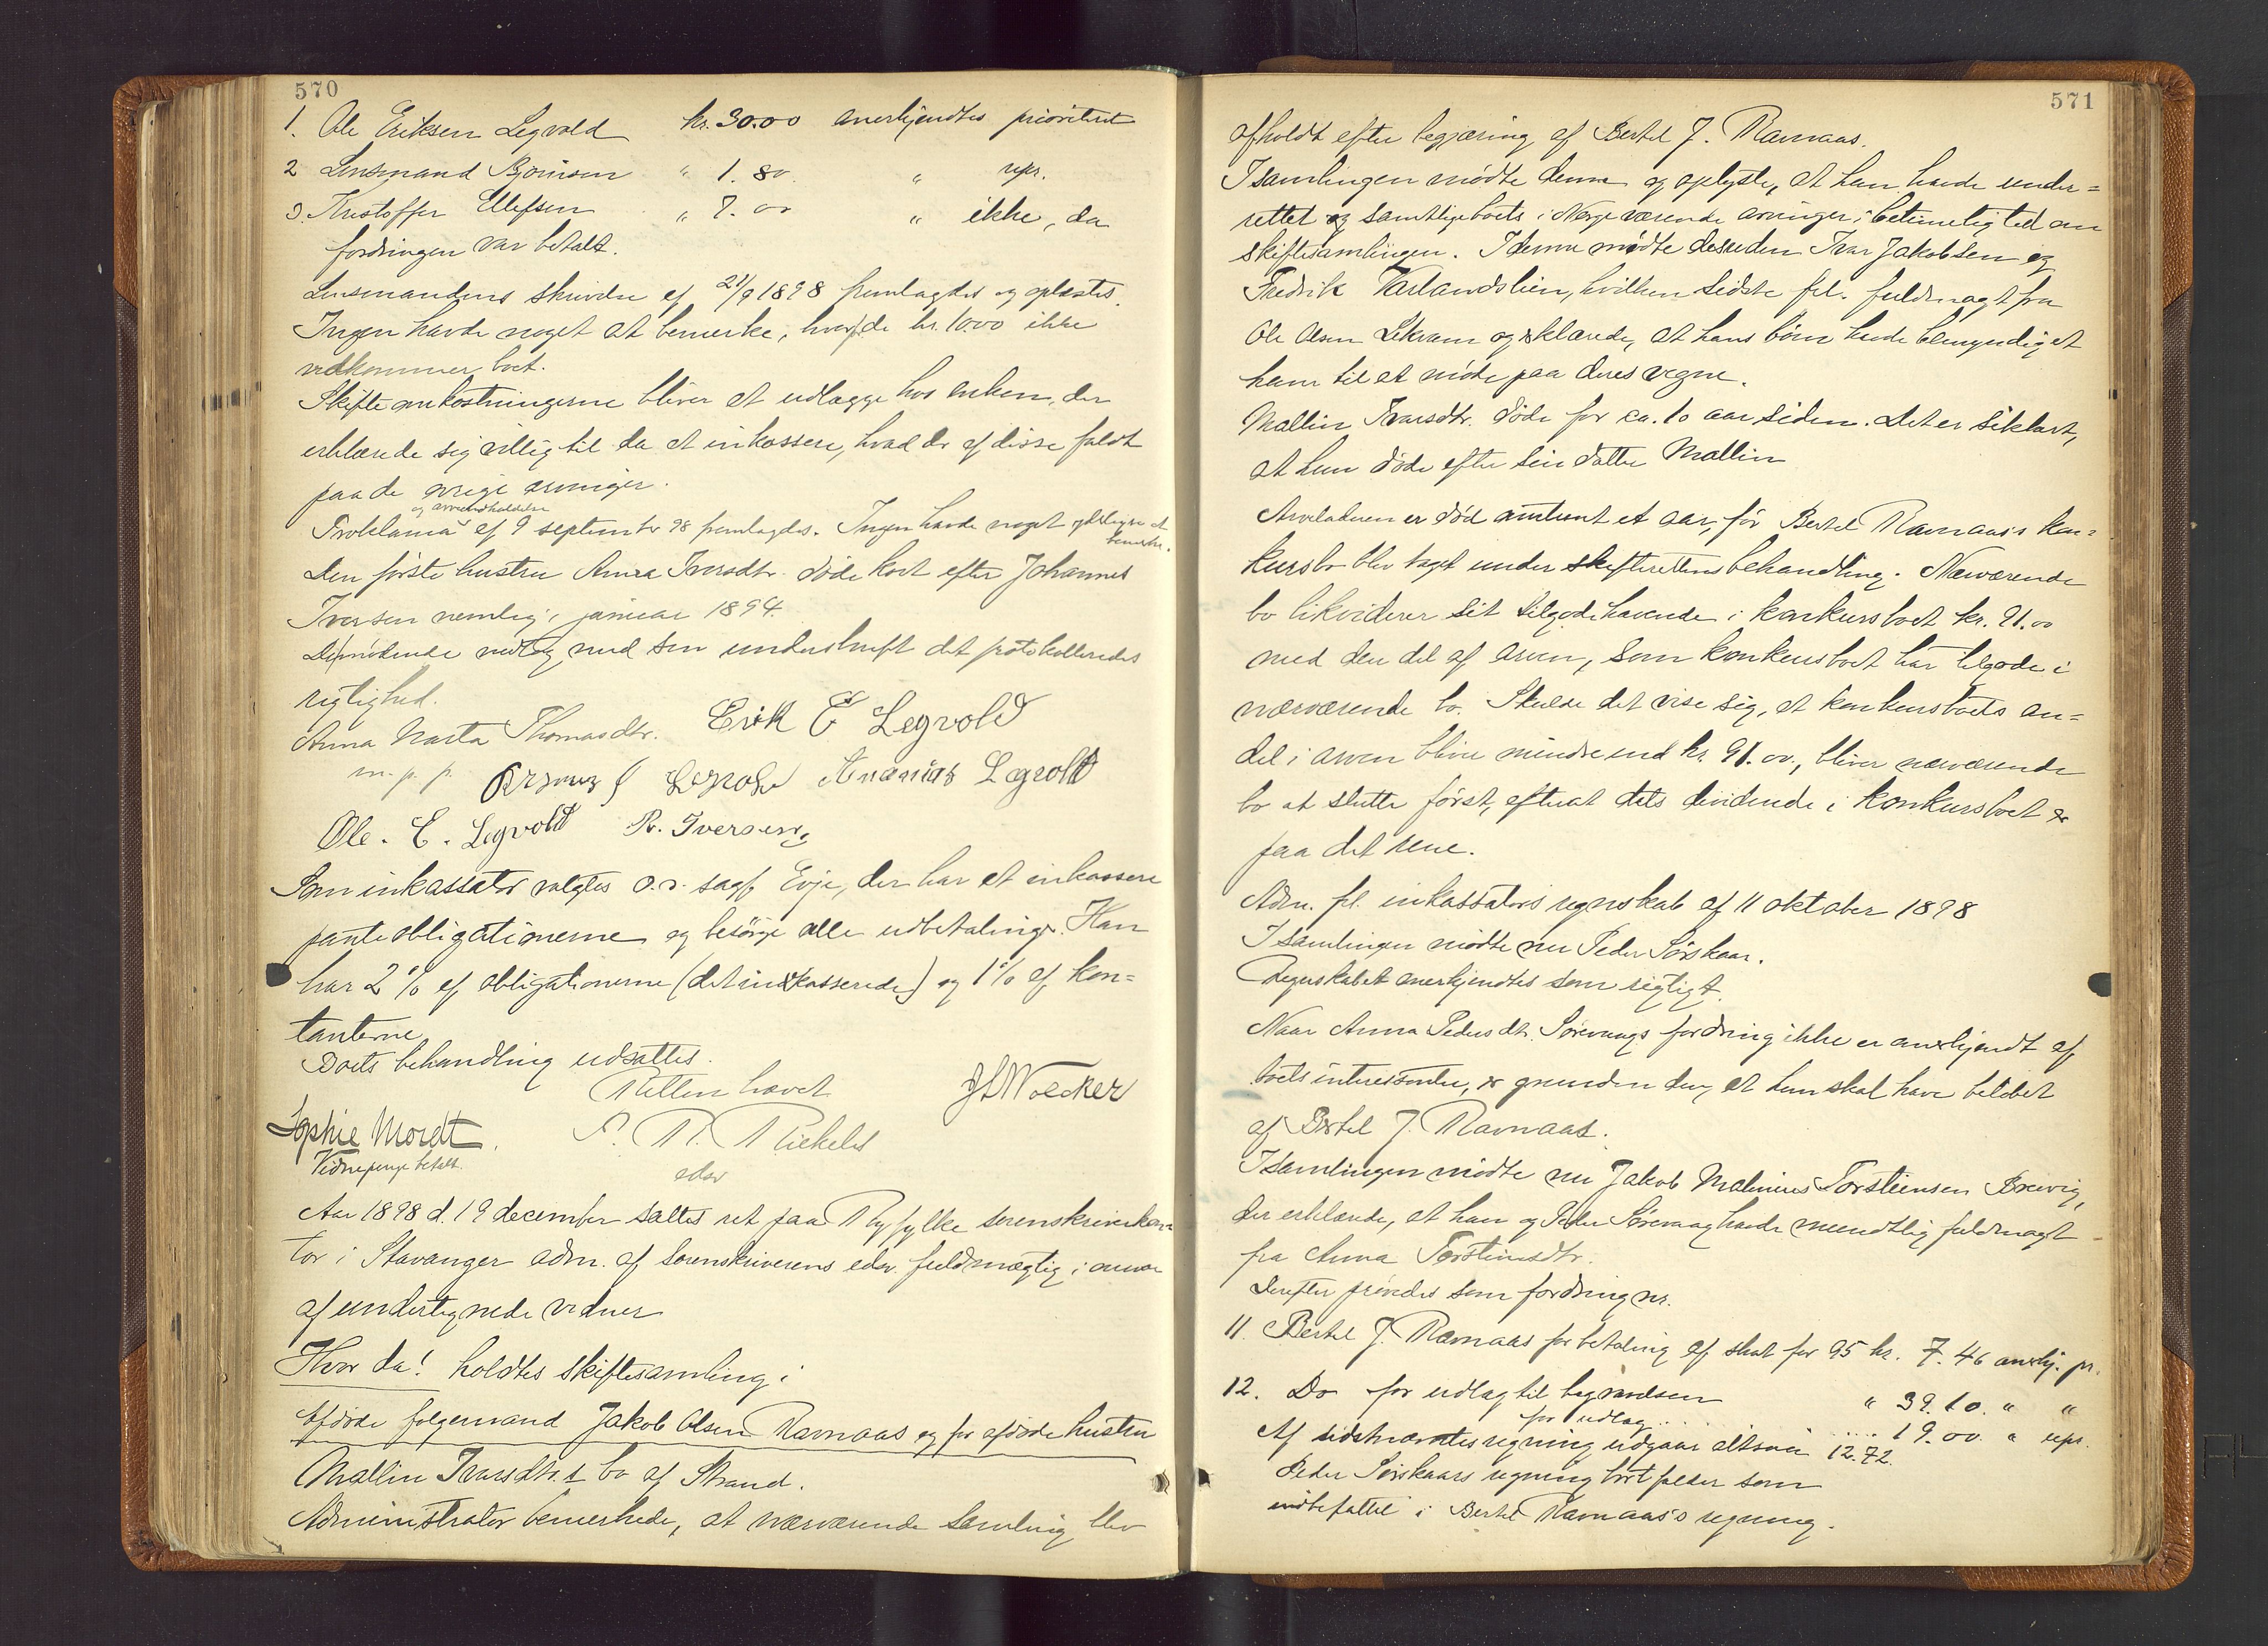 570
1. Ole Eriksen Legvold kr. 30.00 anerkjendtes prioritert
2 Lensmand Bjønisen " 1.80 " upr.
3. Kristoffer Ellefsen " 7.00 " ikke, da
fordringen var betalt.
Lensmandens skrivelse af 21/9 1898 fremlagdes og oplæstes.
Ingen havde noget at bemerke, hvorfor de kr. 10.00 ikke
vedkommer boet.
Skifteomkostningerne bliver at udlægge hos enken, der
erklærede sig villig til da at inkassere, hvad der af disse faldt
paa de øvrige arvinger.
og avertissementholdelse
Proklama af 9 september 98 fremlagdes. Ingen havde noget yderligere at
bemerke.
Den første hustru Anna Iversdtr. døde kort efter Johannes
Iversen nemlig i januar 1894.
De mødende vedtog med sin underskrift det protokolleredes
rigtighed.
Anna Marta Thomasdtr. Erik E Legvold
m. p. p. Legvold Ananias Legvold
Ole. E. Legvold R. Iversen
Som inkassator valgtes o.r. sagf. Evje, der har at inkassere
panteobligationerne og besørge alle udbetalinger. Han
har 2 % af obligationerne (det inkasserede) og 1% af kon=
tanterne
Boets behandling udsattes.
Retten hævet
J S Woecker
Sophie Mordt. P. R. Rickeles
Vidnepenge betalt. edsv
Aar 1898 d. 19 december sattes ret paa Ryfylke sorenskriverkon=
tor i Stavanger adm. af sorenskriverens edsv. fuldmægtig i overvær
af undertegnede vidner
Hvor da! holdtes skiftesamling i
afdøde føgemand Jakob Olsen Ravnaas og før afdøde hustru
Mallin Ivarsdtr.s bo af Strand.
Administrator bemerkede, at nærværende samling blev
571
afholdt efter begjæring af Bertel J. Ravnaas.
I samlingen mødte denne og oplyste, at han havde under=
rettet og samtlige boets i Norge værende arvinger i betimelig tid om
skiftesamlingen. I denne mødte desuden Ivar Jakobsen og
Fredrik Varlandslien, hvilken sidste frl. fuldmagt fra
Ole Olsen Lekvam og erklærede, at hans børn havde bemyndiget
ham til at møde paa deres vegne.
Mallin Ivarsdtr. døde for ca. 10 aar siden. Det er siklart,
at hun døde efter sin datter Mallin
Arveladeren er død omtrent et aar, før Bertel Ravnaas's kon=
kursbo blev taget under skifterettens behandling. Nærværende
bo likviderer sit tilgodehavende i konkursboet kr. 91.00
med den del af arven, som konkursboet har tilgode i
nærværende bo. Skulde det vise sig, at konkursboets an=
del i arven bliver mindre end kr. 91.00, bliver nærværende
bo at slutte først, efterat dets dividende i konkursboet er
paa det rene.
Adm. frl. inkassators regnskab af 11 oktober 1898
I samlingen mødte nu Peder Sørskaar.
Regnskabet anerkjendtes som rigtigt.
Naar Anna Pedersdtr. Sørevaags fordring ikke er anerkjendt af
boets interessenter, er grunden den, at hun skal have beløbet
af Bertel J. Ravnaas.
I samlingen mødte nu Jakob Malinius Torstiensen Brevig,
der erklærede, at han og Peder Sørevaag havde mundtlig fuldmagt
fra Anna Torstiensdtr.
Derefter prøvedes som fordring nr.
11. Bertel J. Ravnaas for betaling af skat for 95 kr. 7.46 anerkj. pr.
12. Do for udlæg til begravelsen " 39.10 " "
for udlæg ..... 19.00 " upr.
Af sidstnævntes regning udgaar altsaa 12.72.
Peder Sørskaars regning bortfalder som
indbefattet i Bertel Ravnaas's regning.